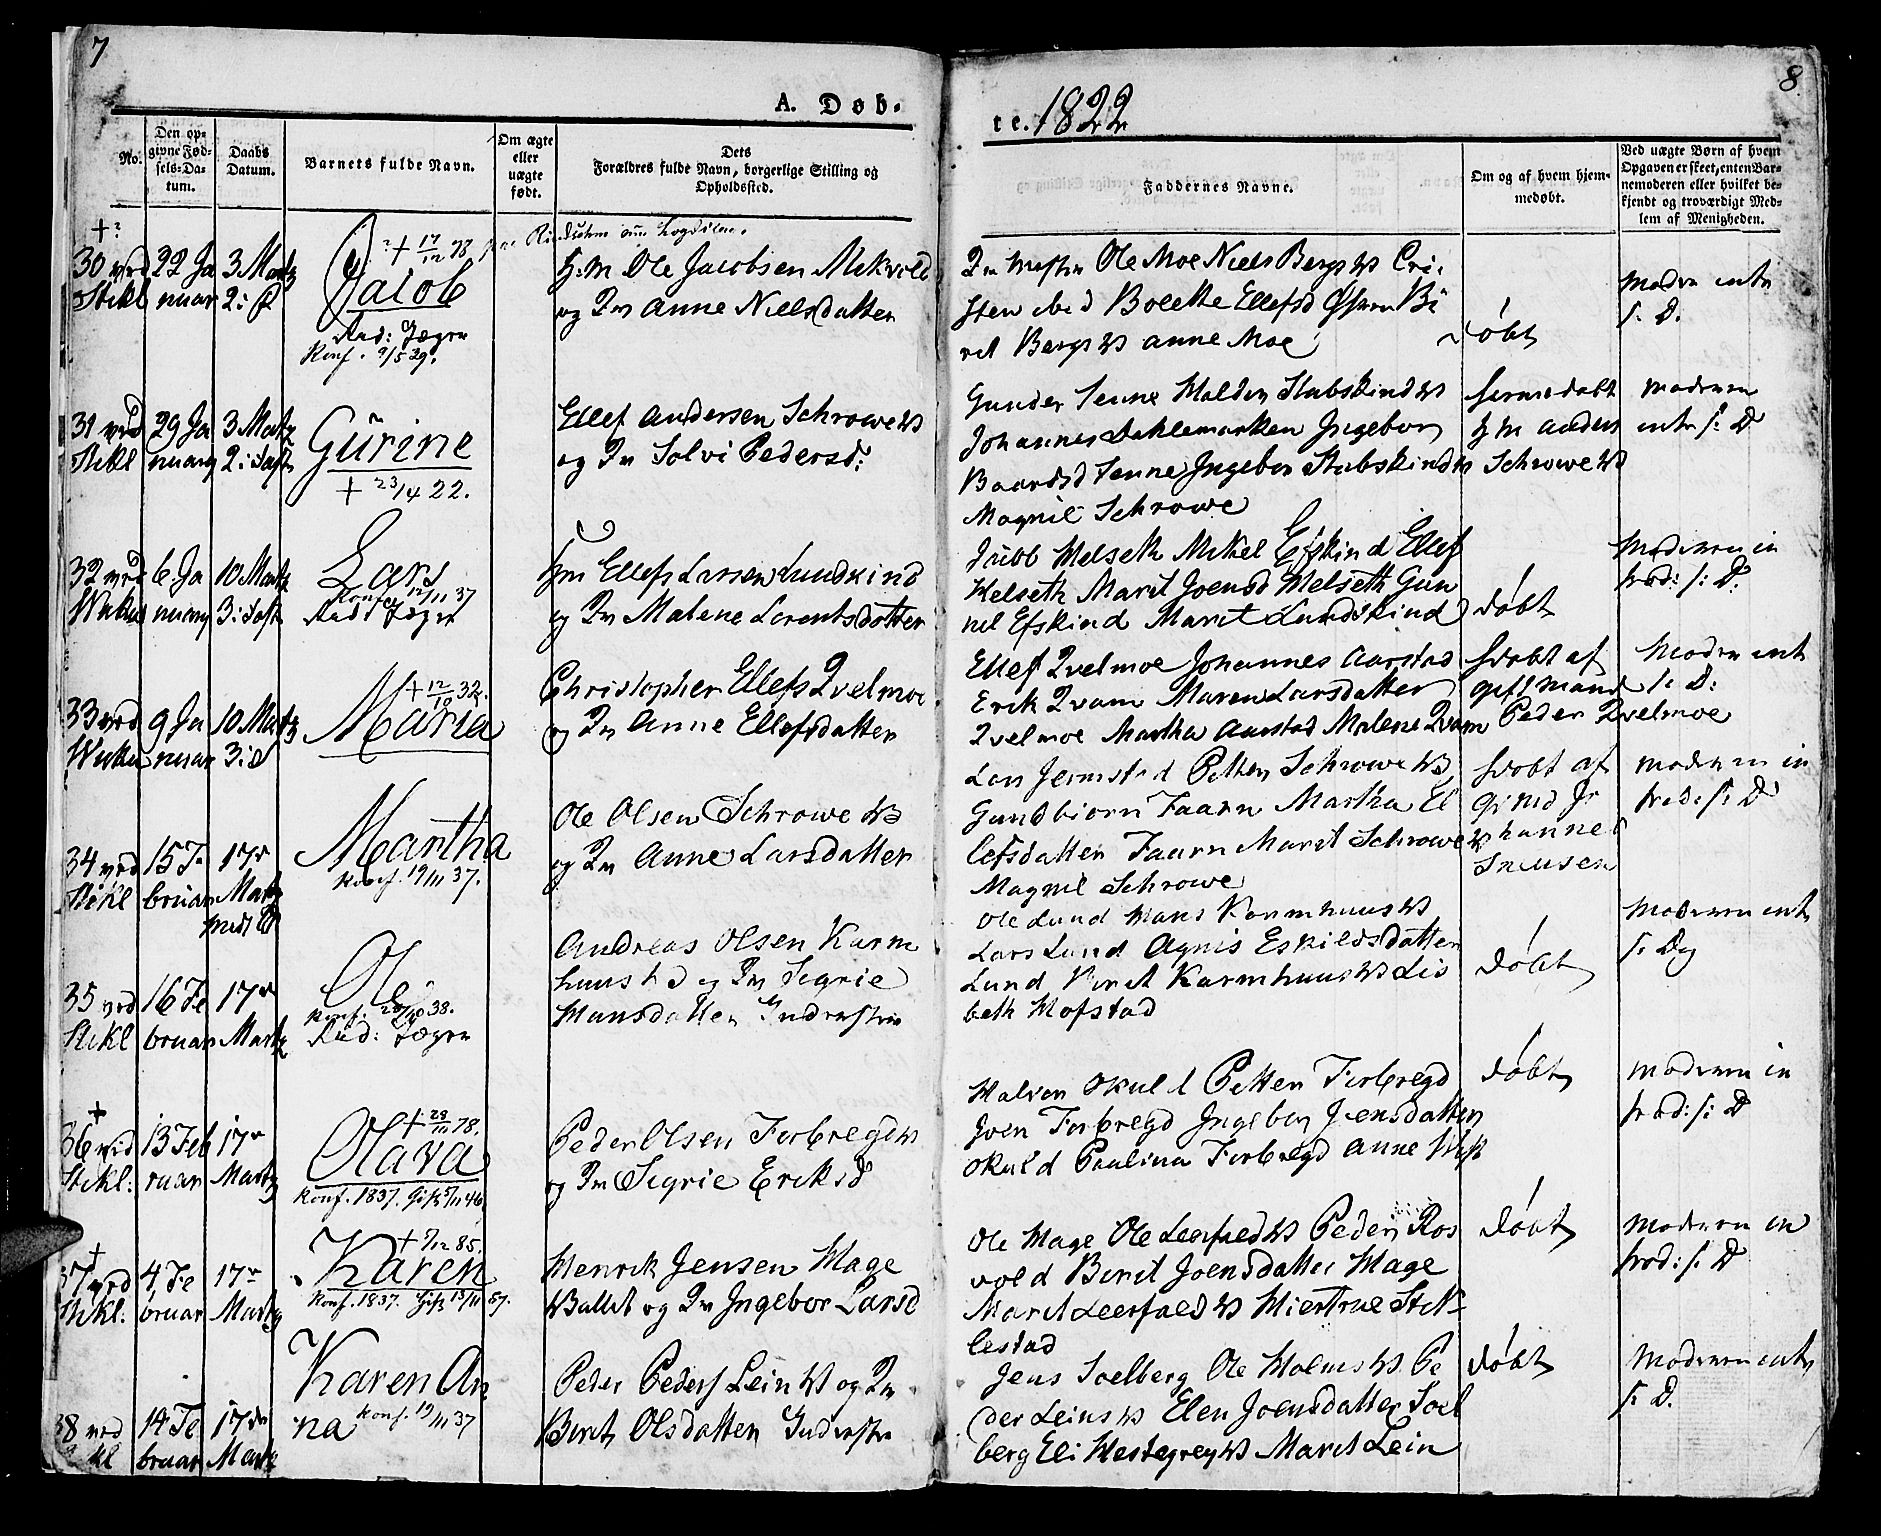 7
8
A. Døb-
te. 1822
No.
Den op-
givne Fød-
sels-Da-
tum.
Daabs
Datum.
Barnets fulde Navn.
Om ægte
eller
uægte
født.
Dets
Forældres fulde Navn, borgerlige Stilling og
Opholdssted.
Faddernes Navne.
Om og af hvem hjem-
medøbt.
Ved uægte Børn af hvem
Opgaven er skeet, enten Bar-
nemoderen eller hvilket be-
kjendt og troværdigt Med-
lem af Menigheden.
+?
30 vrd
Stikl
22 Ja
nuar
3 Martz
2: S
?+ 17/12 78
Jacob
Konf. 9/5 29.
Hm Ole Jacobsen Mikvold
og Qv Anne Nielsdatter
Ole Moe Niels Bergs W Cri
sten Bolette Ellefsd Bi
rit Bergs W anne Moe
døbt
Modern int
s: D.
31 vrd
Stikl
29 Ja
nuary
3 Martz
2: Fast
Gurine
+ 23/4 22.
Ellef Andersen Schrowe W
og Qv Solvi Pedersd:
Gunder Tenne Halden Stubskind W
Johannes Dahlemarken Ingebor
Baardsd Tenne Ingebor Stubskind W
Magnil Schrowe
hjemedøbt
Hm Anders
Schrowe W
moderen
int s: D
32 vrd
Wukn
6 Ja
nuary
10 Martz
3: Fast
Lars
Konf. 12/11 37
Hm Ellefs Larsen Lundskind
og Qv Malene Larentsdatter
Jubb Melseth Mikel Efskind Ellef
Kelseth Marit Joensd Melseth Gun
nil Efskind Marit Lundskind
døbt
Moderen in
trod: s: D.
33 vrd
Wukn
9 Ja
nuar
10 Martz
3: d
+ 12/10 32.
Maria
Christopher Ellefs Qvelmoe
og Qv Anne Ellefsdatter
Ellef Qvelmoe Johannes Aarstad
Erik Qvam Maren Larsdatter
Qvelmoe Martha Aarstad Malene Qvam
døbt af
gift mand
Peder Qvelmoe
Modern int
s: D:
34 vrd
Stikl
15 Fe
bruar
17de
Martz
Martha
Konf. 19/11 37.
Ole Olsen Schrowe W
og Qv Anne Larsdatter
Lars Jermstad Petter Schrowe W
Gundbiorn Faarn Martha El
lefsdatter Faarn Marit Schrowe W
Magnil Schrowe
døbt af
Jo
hannes
Sneusen
moderen in
trod: s: D
35 vrd
Stikl
16 Fe
bruar
17de
Martz
Ole
Konf. 28/10 38.
Andreas Olsen Karm
huus W og Qv Segrie
Hansdatter Inderstre
Ole Lund Hans Karmhuus W
Lars Lund Agnis Eskildsdatter
Lund Birit Karmhuus W Lis
beth Hofstad
døbt
Moderen int
s: D
+
36 vid
Stikl:
13 Feb
ruar
17de
Martz
+ 28/11 78.
Olava
Konf. 1837. Gift 5/11 46
Peder Olsen Forbregd W
og Qv Segrie Eriksd
Halvor Okuld Petter Forbregd
Joen Forbregd Ingebor Jensdatter
Okuld Paulina Forbregd Anne
døbt
moderen in
trod: s: D
+
37 vrd
Stikl:
4 Fe
bruar
17de
Martz
+ 7/12 85.
Karen
Konf. 1837. Gift 13/11 57.
Henrik Jensen Hage
Wallet og Qv Ingebor Larsd
Ole Hage Ole Leerfald W Peder Ros
vold Berit Joensdatter Hage
Marit Leerfald W Miertrue Stik
lestad
døbt
moderen in
trod: s: D
38 vrd
Stikl
14 Fe
bruar
17de
Martz
Karen An
na Konf. 19/11 37
Peder Peders Lein W og Qv
Berit Olsdatter Inderstre
Jens Soelberg Ole Holms W Pe
der Leins W Elen Joensdatter Soel
berg Eli Hestegrey W Marit Lein
døbt
Moderen int
s: D.